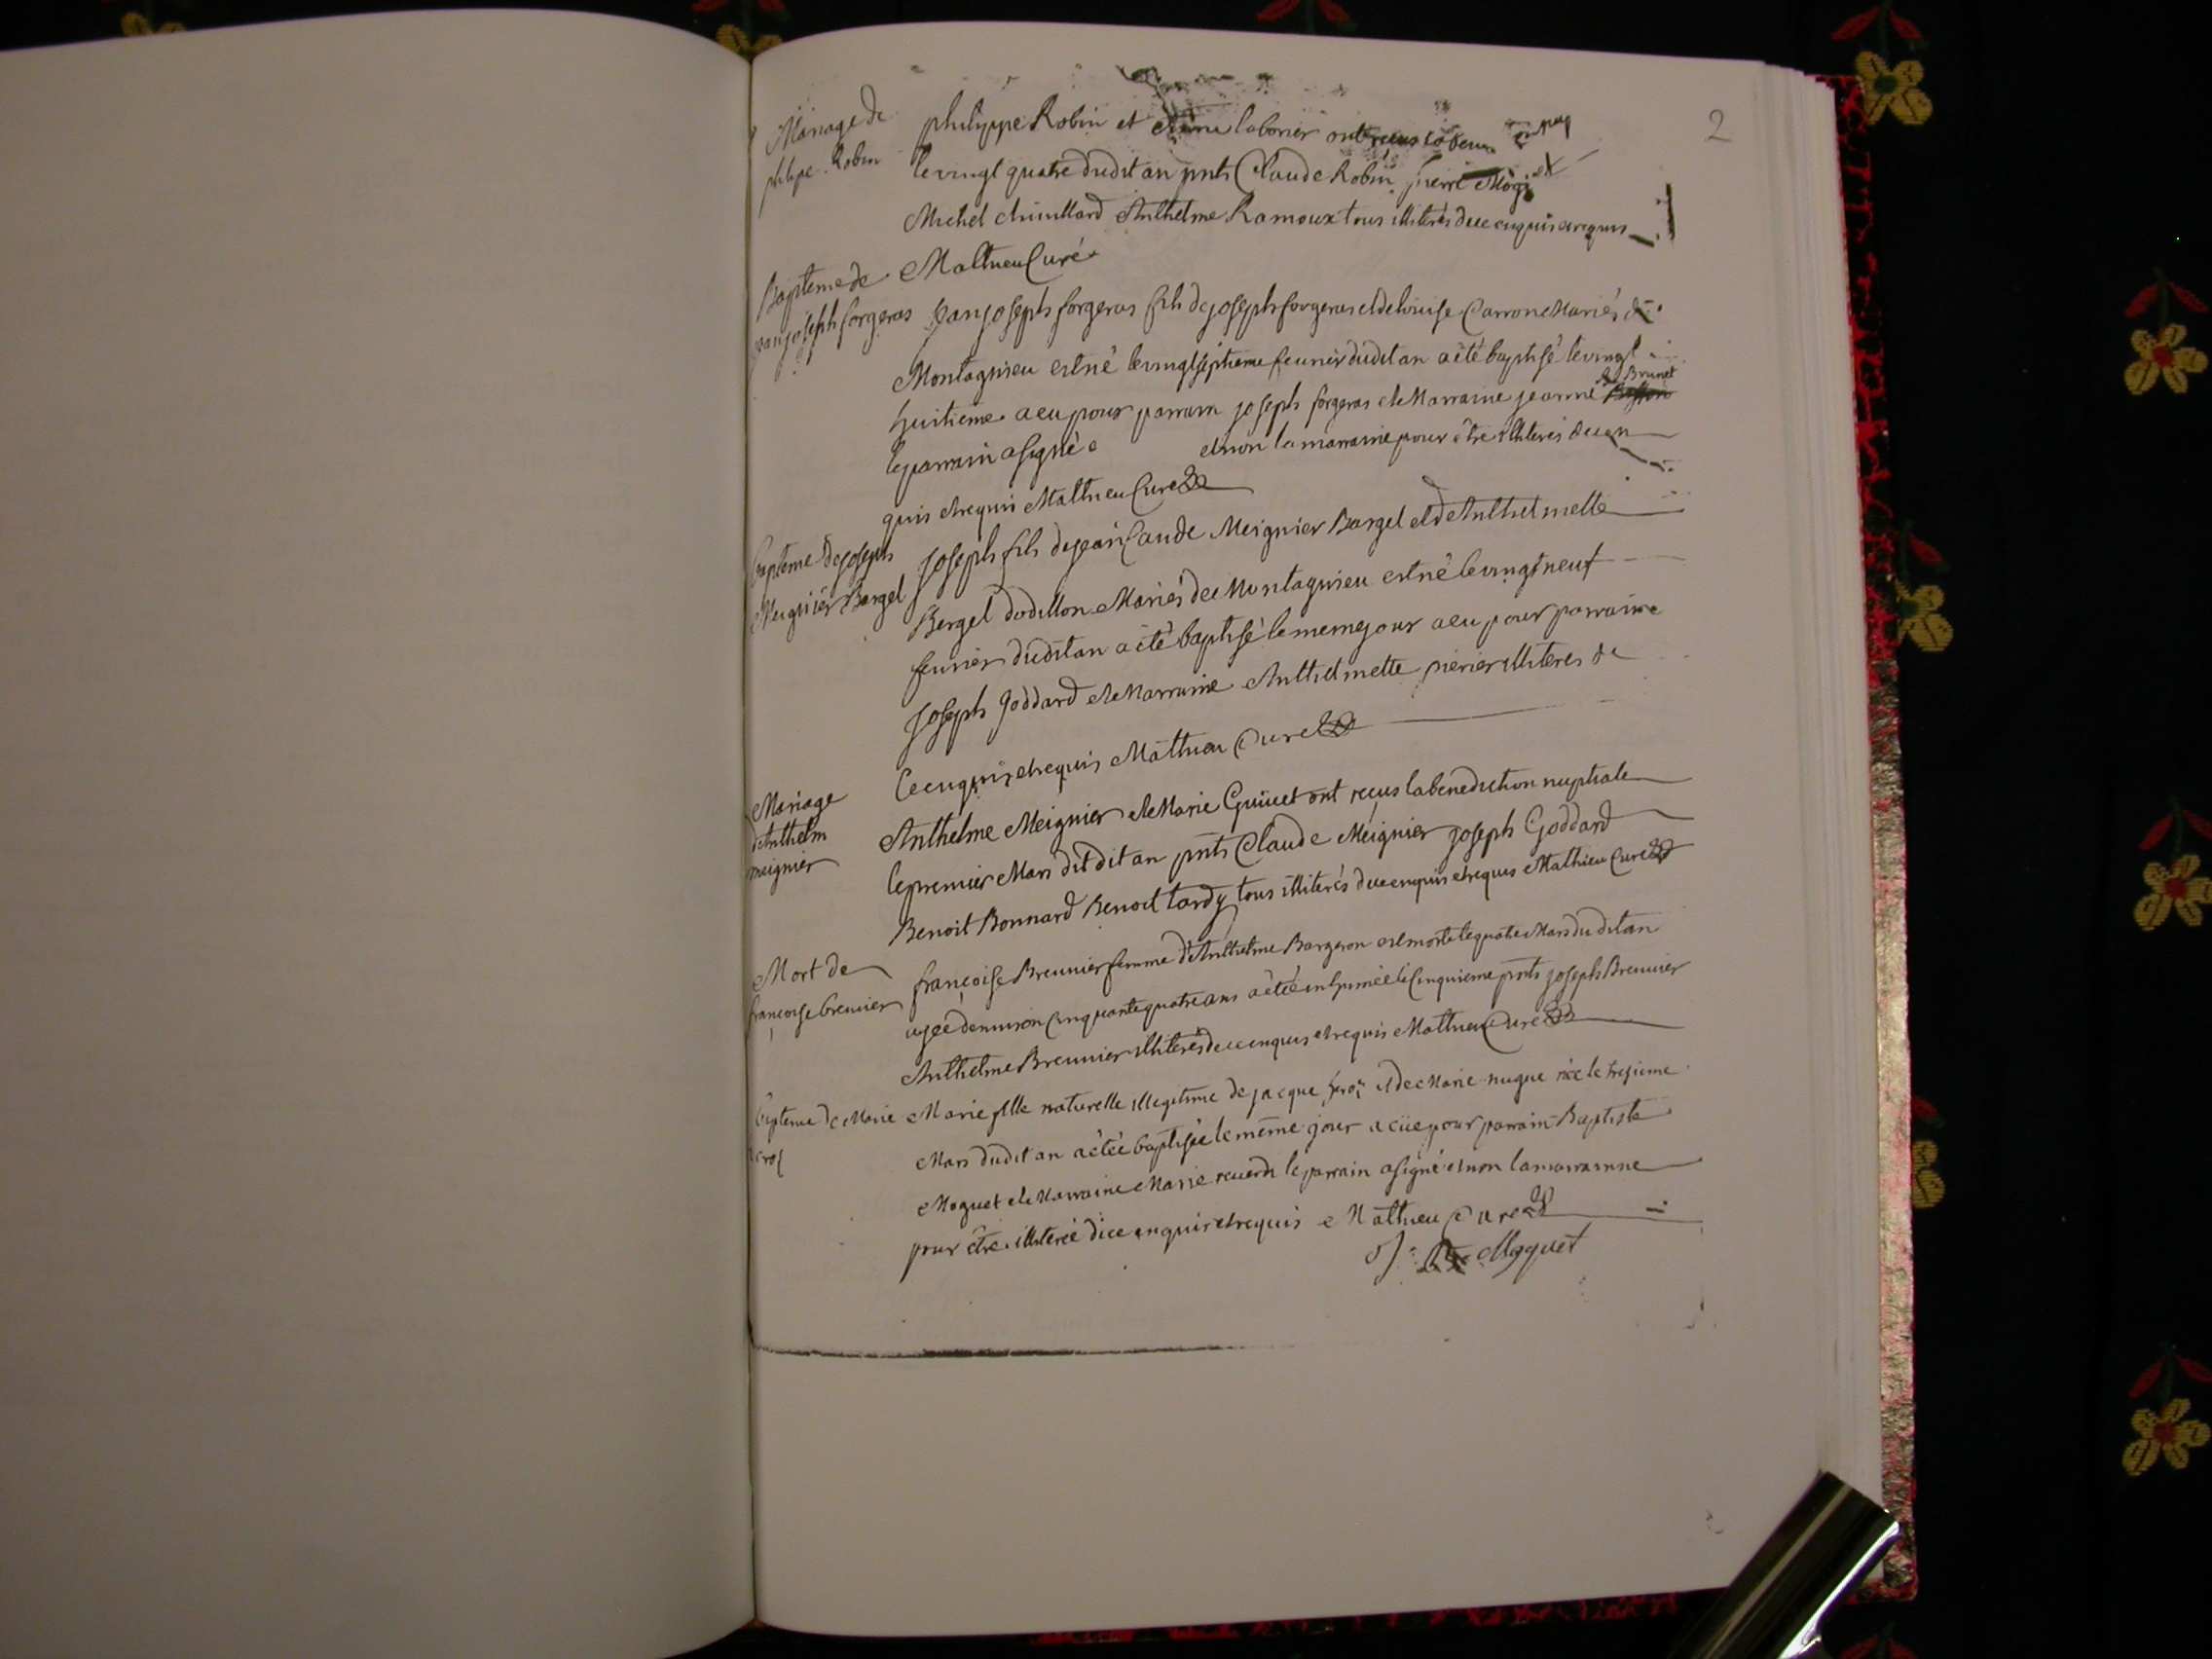 2
Mariage de
philipe Robin
philippe Robin et laborier ont recus la
le vingt quatre dudit an pnts Claude Robin pierre
Michel chiullard Anthelme Ramoux tous illiterés de ce enquis et requis
Mathieu Curé
Bapteme de
jean joseph forgeras
jean joseph forgeras fils de joseph forgeras et de louise Carron Mariés de
Montagnieu est né le vingt septieme feurier dudit an a été baptisé le vingt
huitieme a eu pour parrain joseph forgeras et Marraine jeanne Brunet
le parrain a signé et non la marraine pour être illiterés de ce en
quis et requis Mathieu Curé
bapteme de joseph
Meignier Bargel
joseph fils de jean Caude Meignier Bargel et de Anthelmette
Bergel dodillon Mariés de Montagnieu est né le vingt neuf
feurier dudit an a été baptisé le meme jour a eu pour parrain
joseph goddard et Marraine Anthelmette illiteres de
ce enquis et requis Mathieu Curé
Mariage
d'Anthelm
meignier
Anthelme Meignier et Marie Guiuet ont reçus la benediction nuptiale
le premier Mars dudit an pnts Claude Meignier joseph Goddard
Benoit Bonnard Benoit tardy tous illiterés de ce enquis et requis Mathieu Curé
Mort de
françoise breuuier
françoise Breuuier femme d'Anthelme Bargeron est morte le quatre Mars dudit an
agée denuiron cinquante quatre ans a étée inhumée le Cinquieme pnts joseph Breuuier
Anthelme Breuuier illiterés de ce enquis et requis Mathieu Curé
bapteme de Marie
Marie fille naturelle illegitime de jacque et de Marie nugue née le tresieme
Mars dudit an a étée baptisée le même jour a eüe pour parrain Baptiste
Moguet et Marraine Marie reuerdi le parrain a signé et non la marrainne
pour être illiterée de ce enquis et requis Mathieu Curé
Moguet